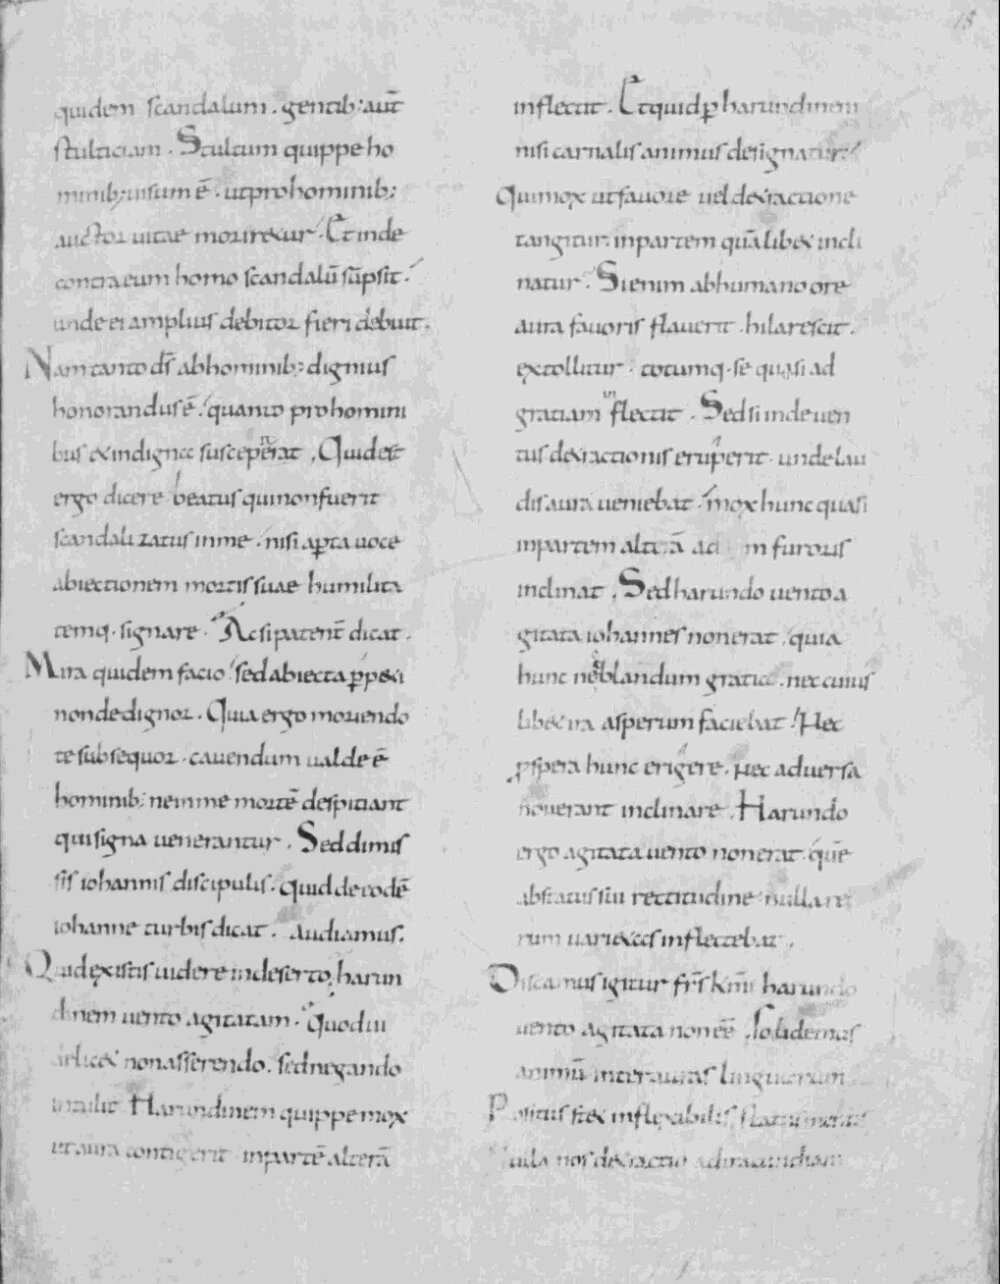 18
quidem scandalum . gentib; aut̄
stulticiam . Stultum quippe ho
minib; uisum ē . ut pro hominib;
auctor uitae moriretur . Et inde
contra eum homo scandalū sūpsit .
unde ei amplius debitor fieri debuit .
Nam tanto ds̄ ab hominib; dignius
honorandus ē . quanto pro homini
bus et indigna susceperat . Quid est
ergo dicere beatus qui non fuerit
scandalizatus in me . nisi aperta uoce
abiectionem mortis suae humilita
temq . signare . Ac si patent̄ dicat .
Mira quidem facio . sed abiecta ꝑpeti
non dedignor . Quia ergo moriendo
te subsequor . cauendum ualde ē
hominib; ne in me mortē despiciant
qui signa uenerantur . Sed dimis
sis iohannis discipulis . quid de eodē
iohanne turbis dicat . audiamus .
Quid existis uidere in deserto, harun
dinem uento agitatam . Quod ui
delicet non asserendo . sed negando
intulit Harundinem quippe mox
ut aura contigerit in partē alterā
inflectit . Et quid ꝑ harundinem
nisi carnalis animus designatur .
Qui mox ut fauore uel detractione
tangitur . in partem quālibet incli
natur . Si enim ab humano ore
aura fauoris flauerit . hilarescit .
extollitur . totumq . se quasi ad
gratiam inflectit . Sed si inde uen
tus detractionis eruperit . unde lau
dis aura ueniebat . mox hunc quasi
in partem alterā ad furoris
inclinat . Sed harundo uento a
gitata iohannes non erat . quia
hunc nec blandum gratia . nec cuius
libet ira asperum faciebat . Nec
ꝓspera hunc erigere . nec aduersa
nouerant inclinare . Harundo
ergo agitata uento non erat . quē
ab status sui rectitudine nulla re
rum uarietas inflectebat .
Discamus igitur frs̄ km̄i harundo
uento agitata non eē . solidemus
animū inter auras linguarum
Positus stet inflexibilis status mentis
Nulla nos detractio ad iracundiam